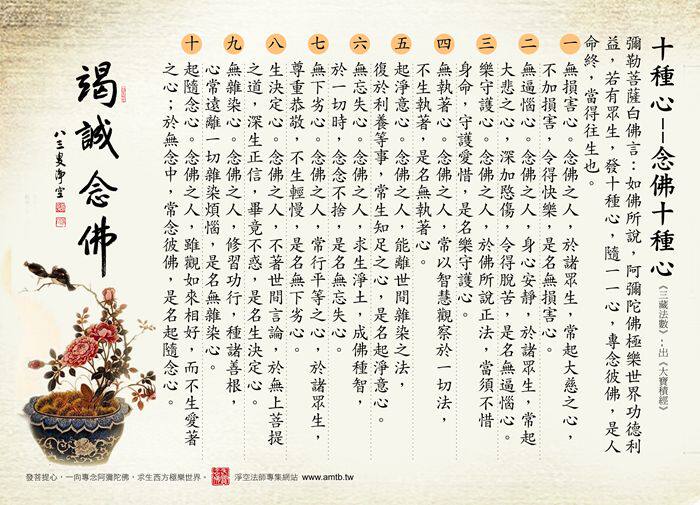 十種心—念佛十種心
《三藏法數》：出《大寶積經》
彌勒菩薩白佛言：如佛所說，阿彌陀佛極樂世界功德利
益，若有眾生，發十種心，隨一一心，專念彼佛，是人
命終，當得往生也。
一 無損害心。念佛之人，於諸眾生，常起大慈之心，
不加損害，令得快樂，是名無損害心。
二 無逼惱心。念佛之人，身心安靜，於諸眾生，常起
大悲之心，深加愍傷，令得脫苦，是名無逼惱心。
三 樂守護心。念佛之人，於佛所說正法，當須不惜
身命，守護愛惜，是名樂守護心。
四 無執著心。念佛之人，常以智慧觀察於一切法，
不生執著，是名無執著心。
五 起淨意心。念佛之人，能離世間雜染之法，
復於利養等事，常生知足之心，是名起淨意心。
六 無忘失心。念佛之人，求生淨土，成佛種智，
於一切時，念念不捨，是名無忘失心。
七 無下劣心。念佛之人，常行平等之心，於諸眾生，
尊重恭敬，不生輕慢，是名無下劣心。
八 生決定心。念佛之人，不著世間言論，於無上菩提
之道，深生正信，畢竟不惑，是名生決定心。
九 無雜染心。念佛之人，修習功行，種諸善根，
心常遠離一切雜染煩惱，是名無雜染心。
十 起隨念心。念佛之人，雖觀如來相好，而不生愛著
之心；於無念中，常念彼佛，是名起隨念心。
竭誠念佛
八三叟淨空
發菩提心，一向專念阿彌陀佛，求生西方極樂世界。
淨空法師專集網站 www.amtb.tw